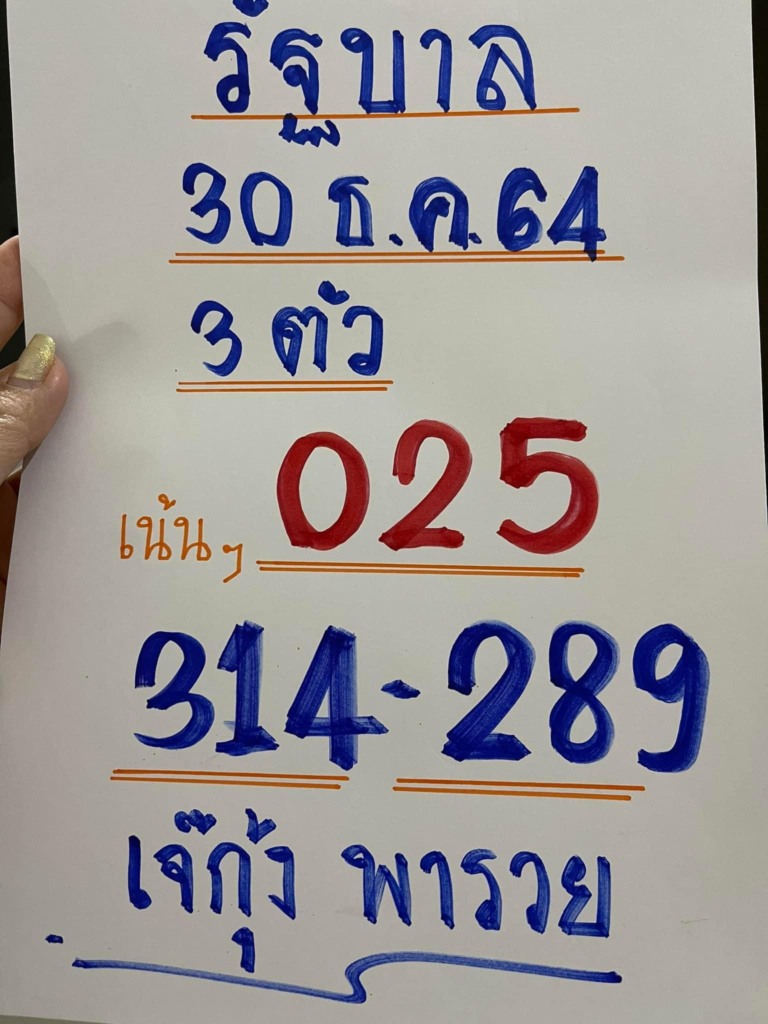 รัฐบาล
30 ธ.ค.64
3 ตัว
025
เน้นๆ
314-289
เจ๊กุ้ง พารวย